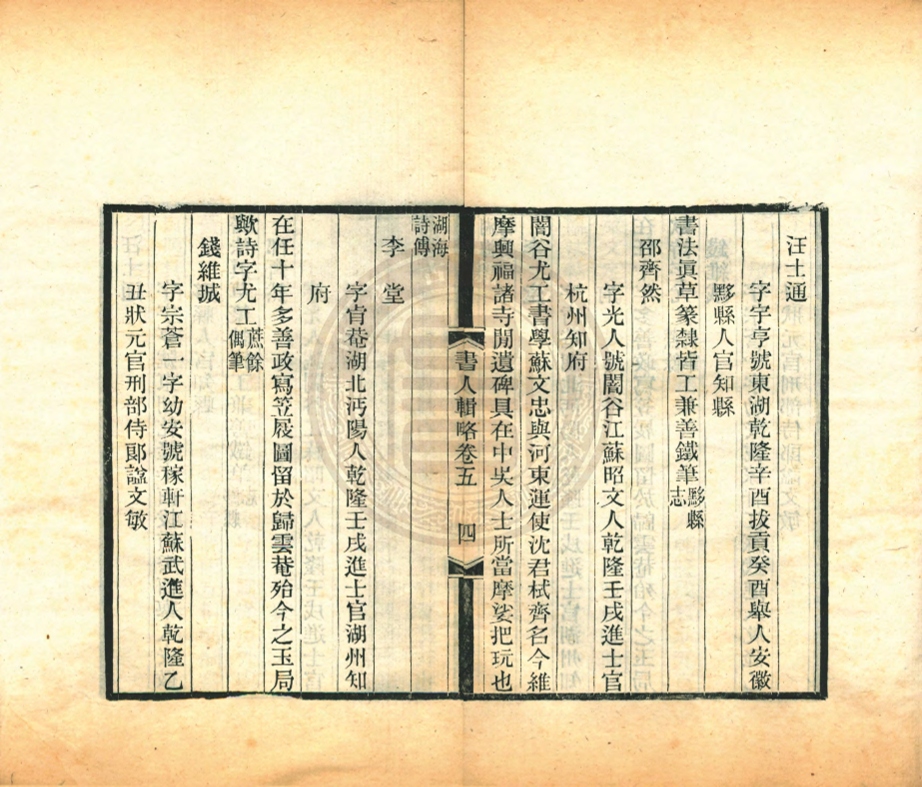 汪士通
字宇亨號東湖乾隆辛酉拔貢癸酉舉人安徽
黟縣人官知縣
書法眞草篆隸皆工兼善鐵筆黟縣志
邵齊然
字光人號闇谷江蘇昭文人乾隆壬戌進士官
杭州知府
闇谷尤工書學蘇文忠與河東運使沈君栻齊名今維
摩興福諸寺閒遺碑具在中吳人士所當摩挲把玩也
書人輯略卷五 四
湖海詩傳
李堂
字肯菴湖北沔陽人乾隆壬戌進士官湖州知
府
在任十年多善政寫笠屐圖留於歸雲菴殆今之玉局
歟詩字尤工蔗餘偶筆
錢維城
字宗蒼一字幼安號稼軒江蘇武進人乾隆乙
丑狀元官刑部侍郞諡文敏